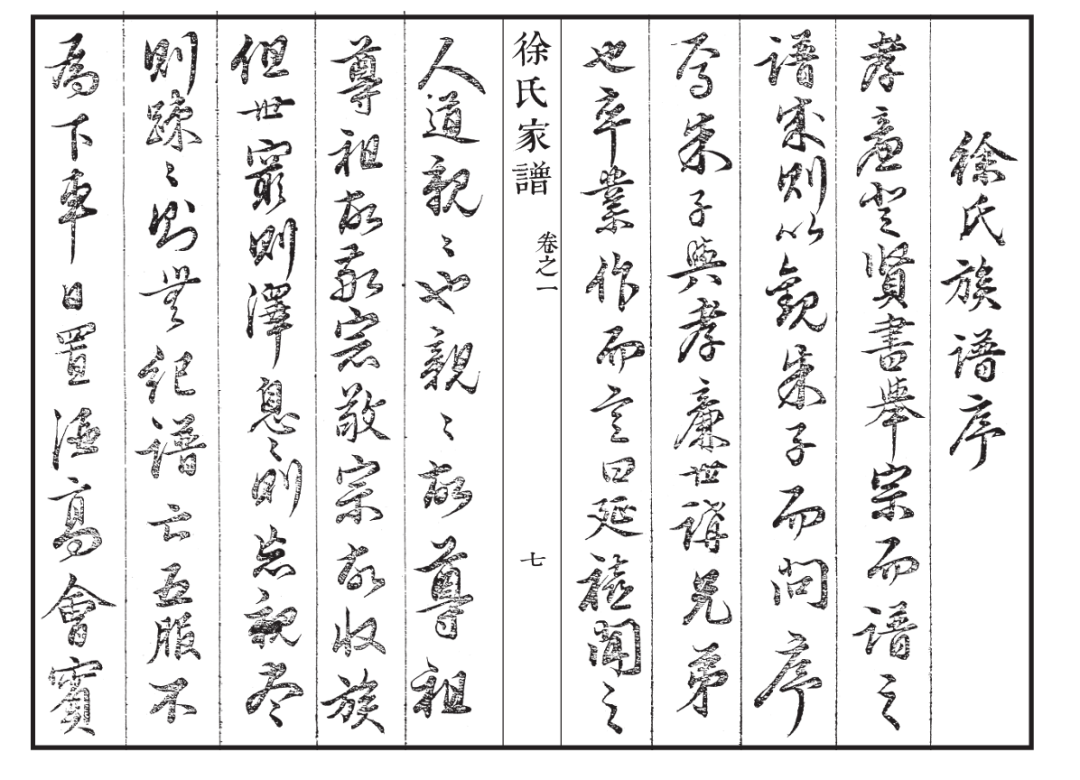 徐氏族譜序
孝廉登賢書舉宗而譜之
譜成則以觀朱子而問序
焉朱子與孝廉世講兄弟
也卒業作而言曰延禧聞之
徐氏家譜 卷之一 七
人道親〻也親〻故尊祖
尊祖故敬宗敬宗故收族
但世窮則澤息〻則忘親尽
則踈〻則無紀譜亡五服不
為下車日置酒高會賓